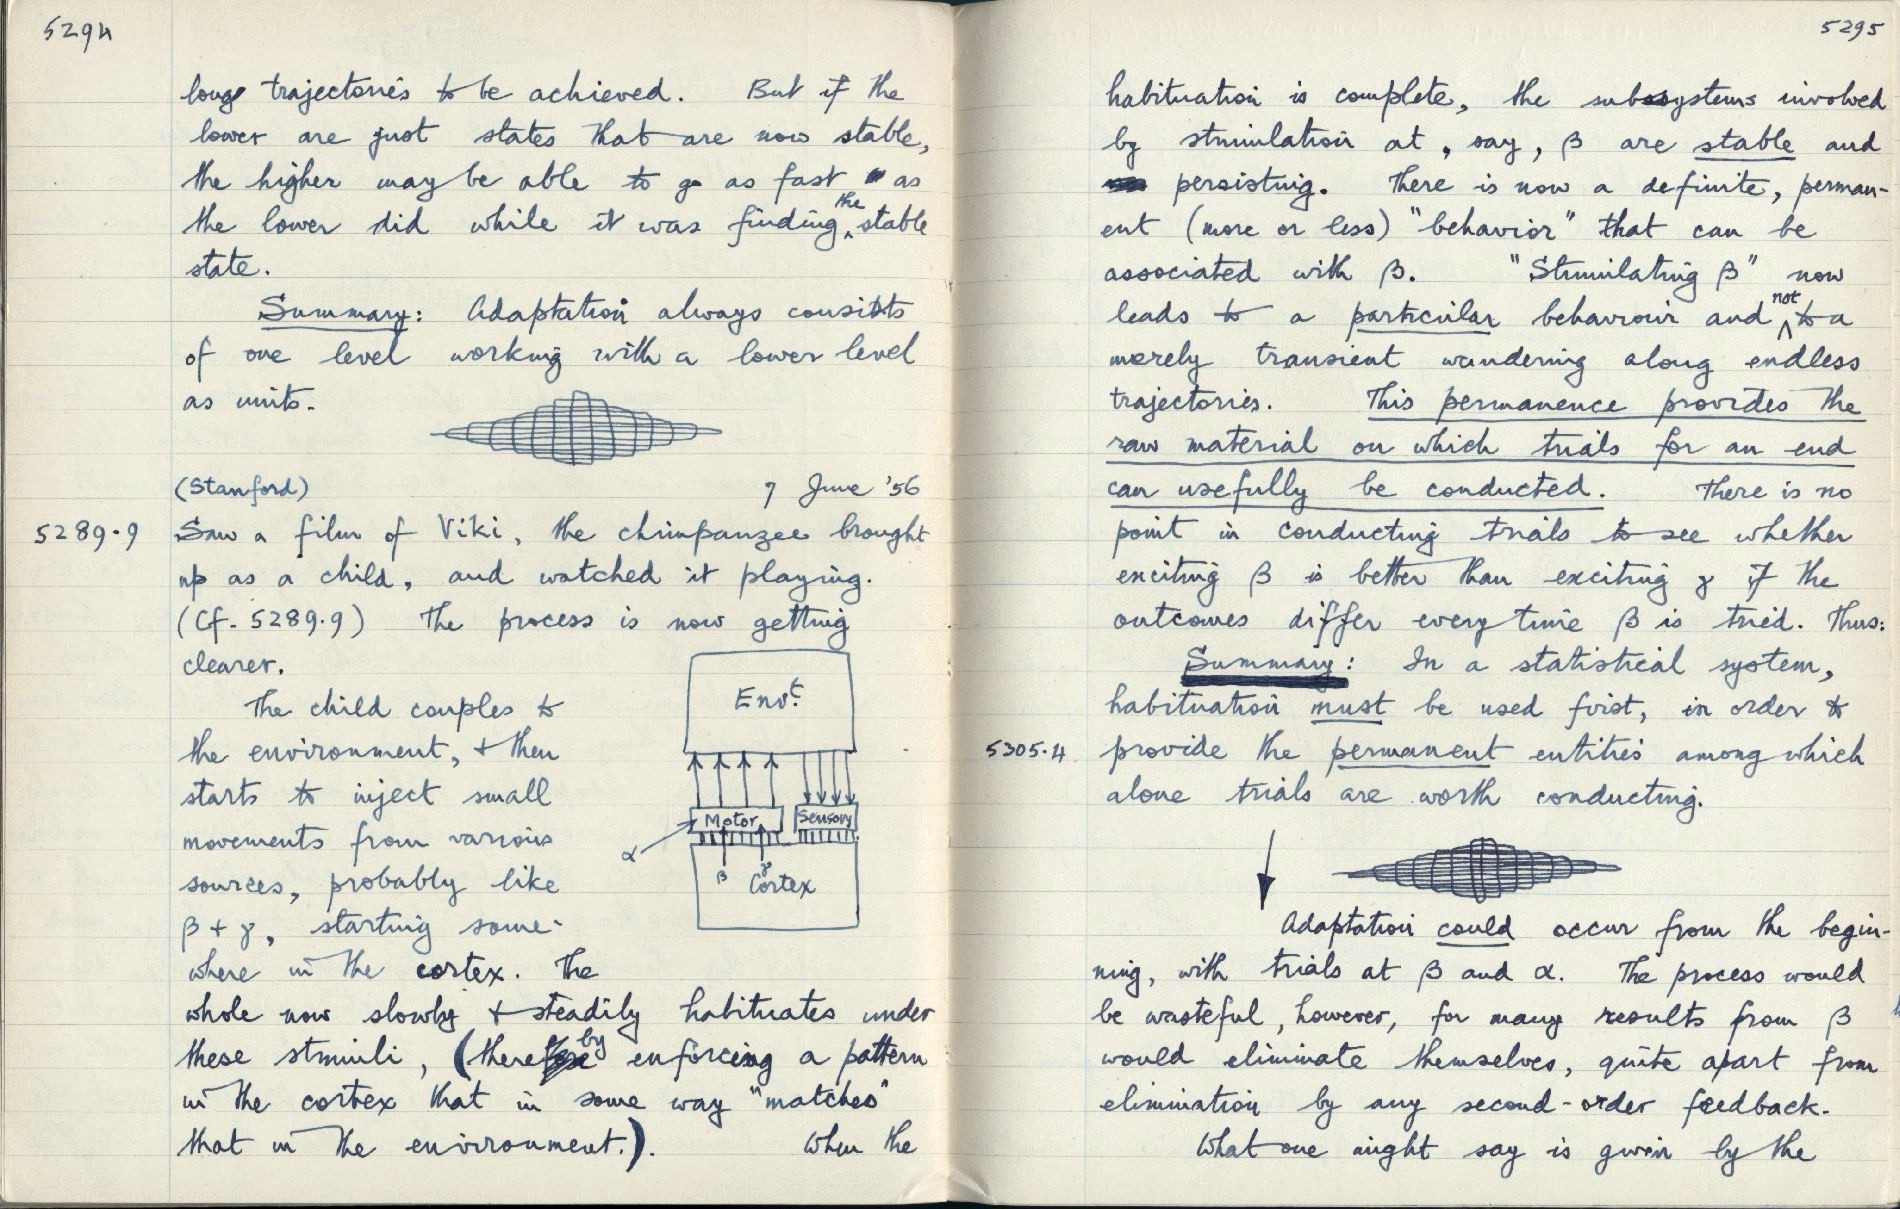 5294
long trajectories to be achieved. But if the
lower are just states that are now stable,
the higher may be able to go as fast as
the lower did while it was finding the stable
state.
Summary: Adaptation always consists
of one level working with a lower level
as units.
(Stanford) 7 June '56
5289.9 Saw a film of Viki, the chimpanzee brought
up as a child, and watched it playing.
(Cf. 5289.9) The process is now getting
clearer.
The child couples to
the environment, + then
starts to inject small
movements from various
sources, probably like
β + γ, starting some-
where in the cortex. The
whole now slowly + steadily habituates under
these stimuli, (thereby enforcing a pattern
in the cortex that in some way "matches"
that in the environment.). When the
Envt.
Motor Sensory
α
β γ
Cortex
5295
habituation is complete, the subsystems involved
by stimulation at, say, β are stable and
persisting. There is now a definite, perman-
ent (more or less) "behavior" that can be
associated with β. "Stimulating β" now
leads to a particular behaviour and not to a
merely transient wandering along endless
trajectories. This permanence provides the
raw material on which trials for an end
can usefully be conducted. There is no
point in conducting trials to see whether
exciting β is better than exciting γ if the
outcomes differ every time β is tried. Thus:
Summary: In a statistical system,
habituation must be used first, in order to
5305.4 provide the permanent entities among which
alone trials are worth conducting.
Adaptation could occur from the begin-
ning, with trials at β and α. The process would
be wasteful, however, for many results from β
would eliminate themselves, quite apart from
elimination by any second-order feedback.
What one might say is given by the